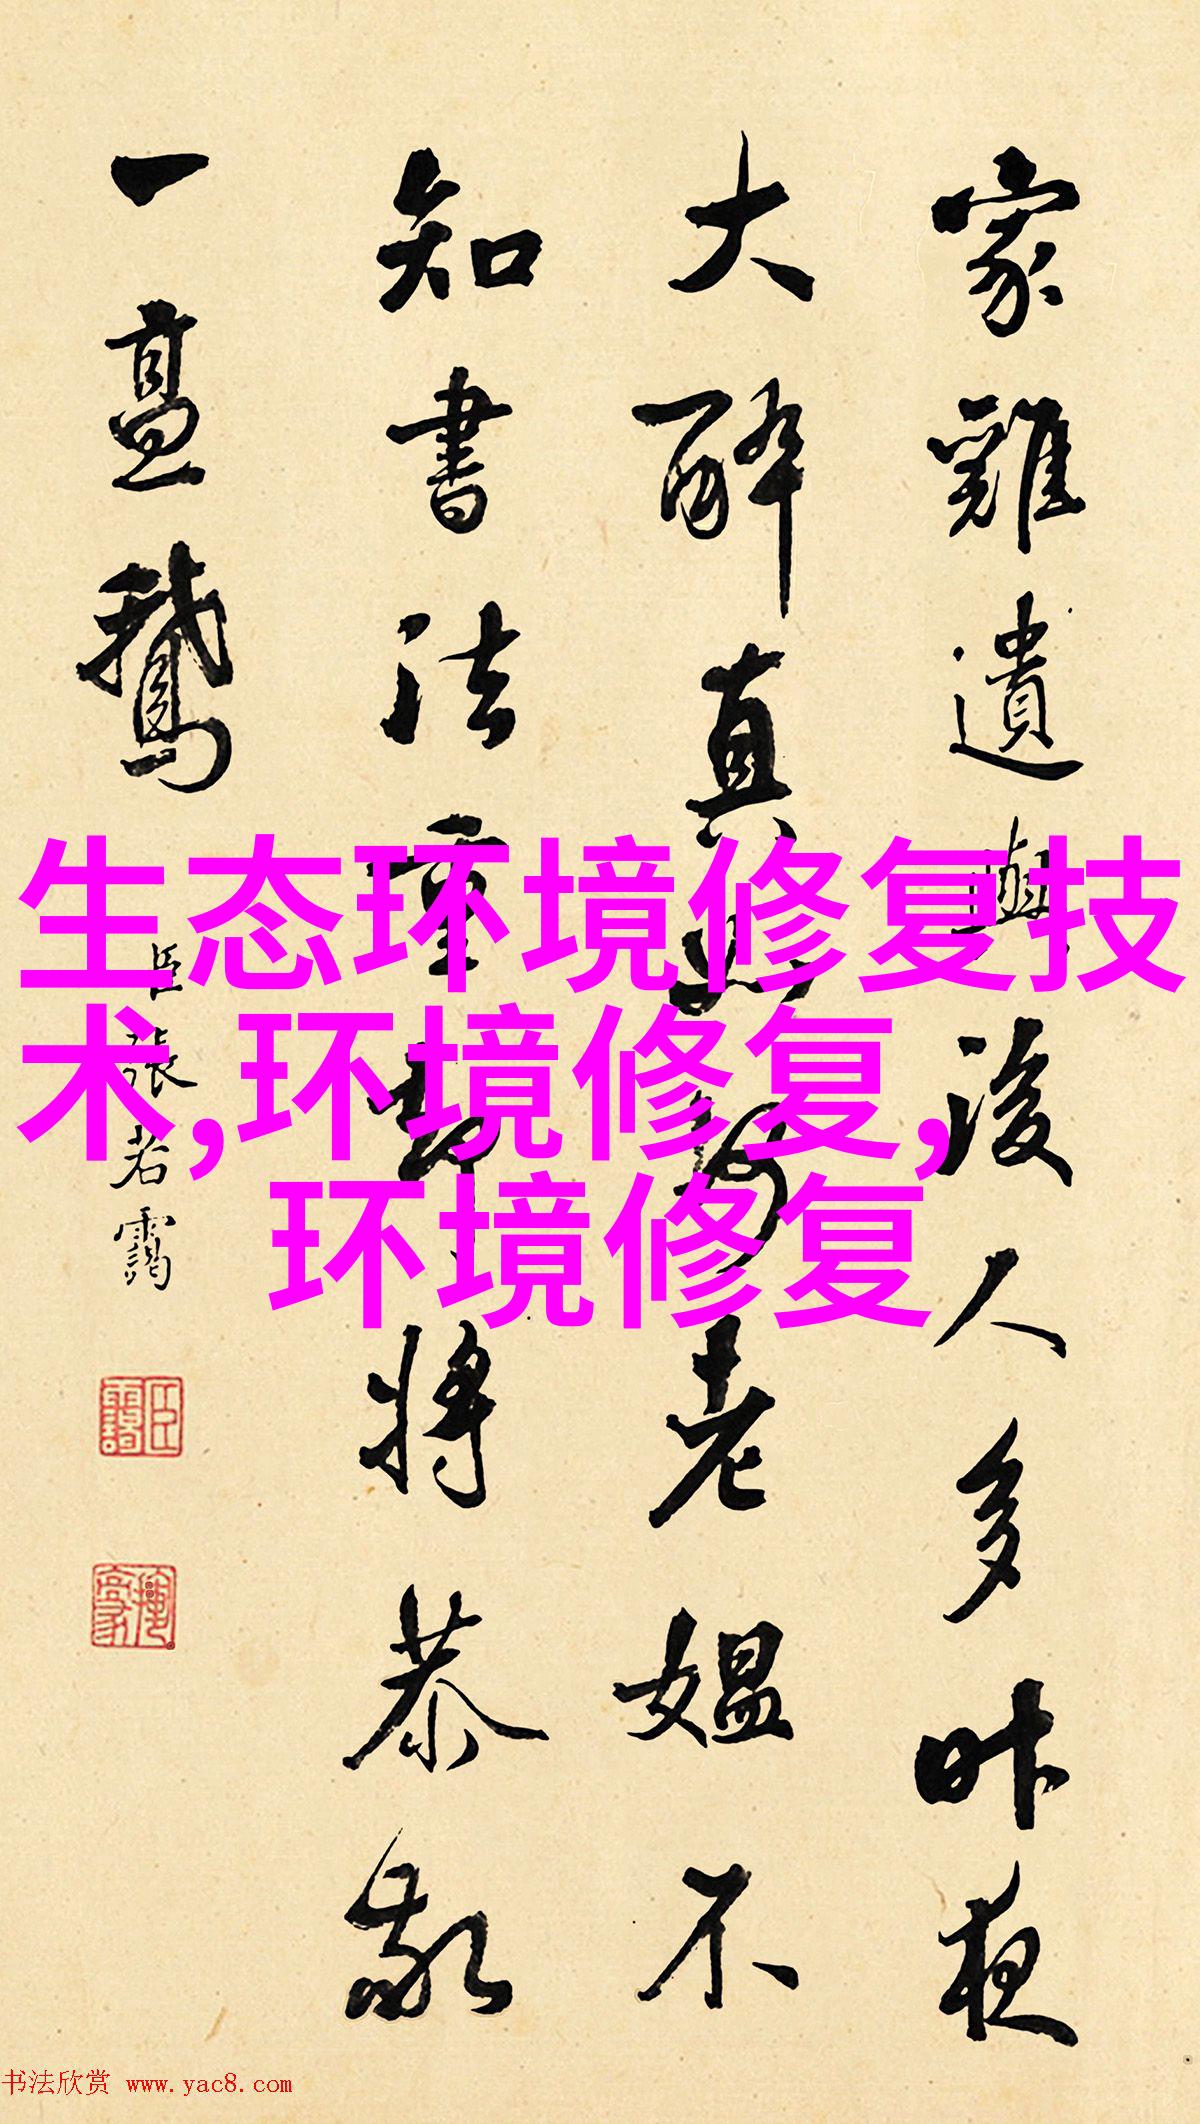 家雞遺與後人多昨夜
大醉真老媼不
知書法重將恭敬
一鵞
臣張若靄
生态环境修复技
术,环境修复,
环境修复
书法欣赏 www.yac8.com